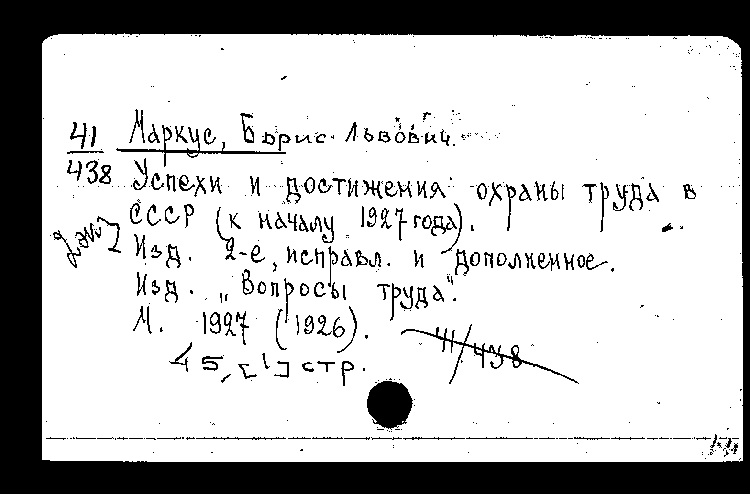 41 Маркус, Борис Львович.
438 Успехи и достижения охраны труда в
СССР (к началу 1927 года).
2 экз Изд. 2-е, исправл. и дополненное.
Изд. „Вопросы труда".
М. 1927 (1926).
41/438
45, [1] стр.